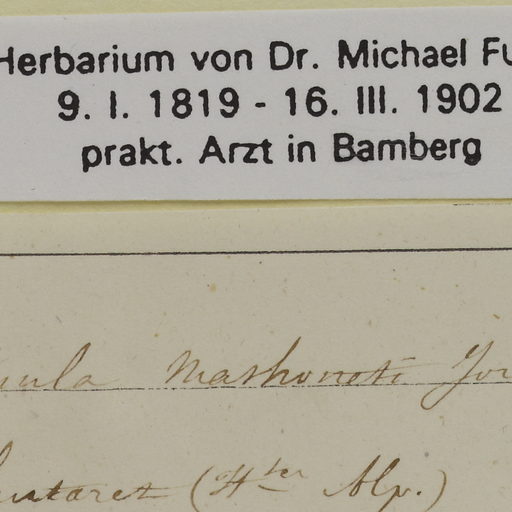 Herbarium von Dr. Michael Fu
9. I. 1819 - 16. III. 1902
prakt. Arzt in Bamberg
ula Mathoneti Jor
Lautaret (Htes Alp.)